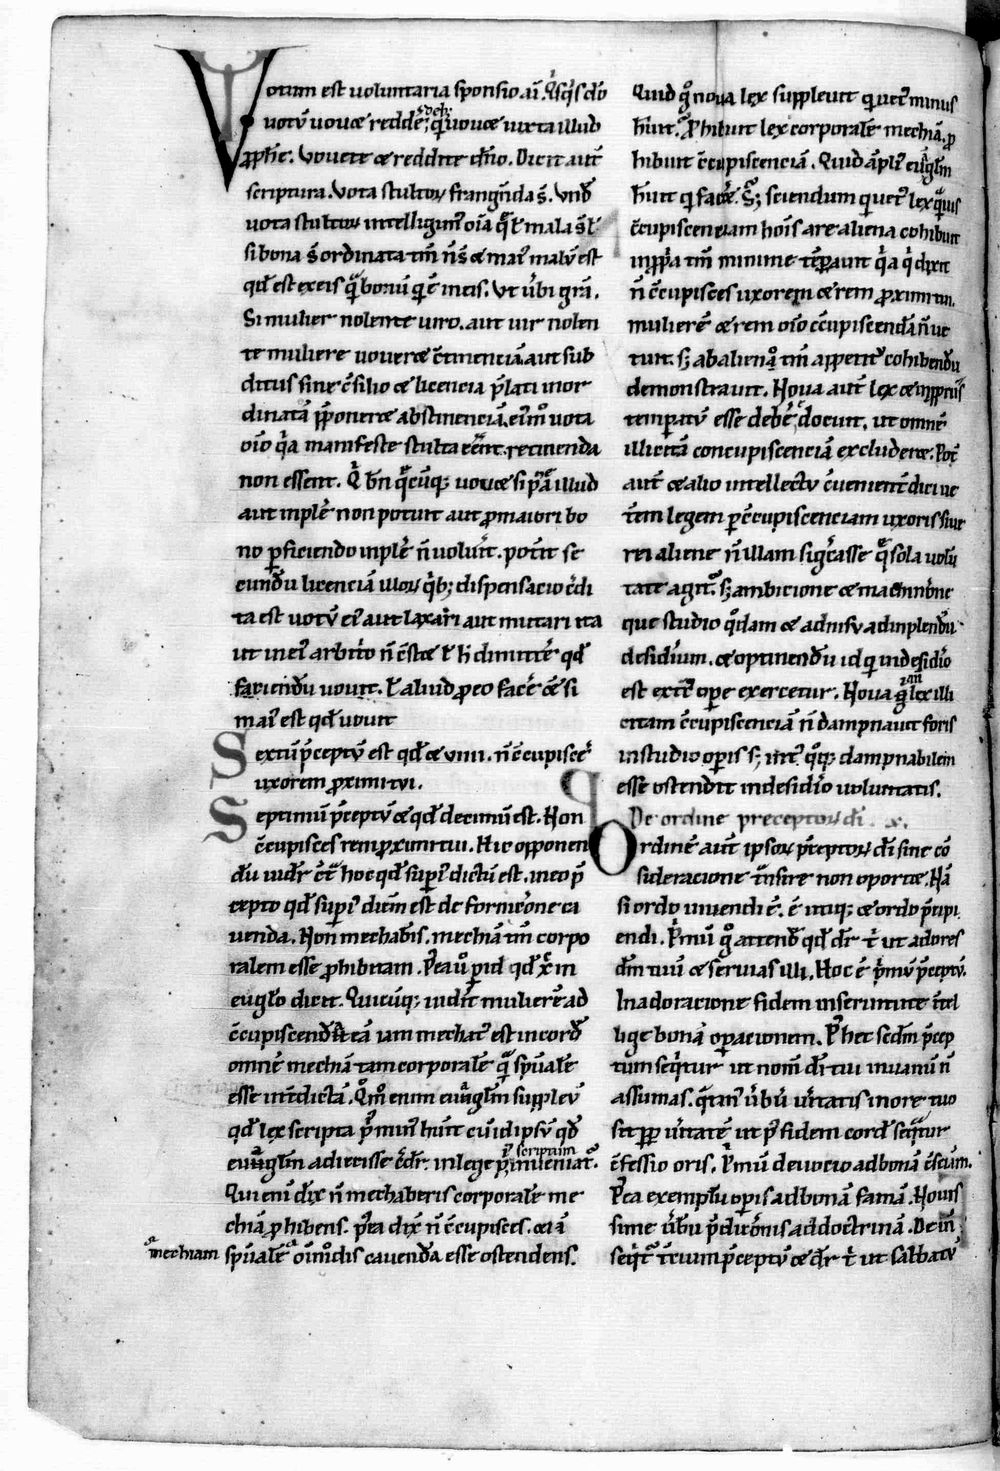 Votum est voluntaria sponsio aĩ. Qͥsq̃s dõ
votũ vovet redde᷑; q̃ vovet iuxta illud
ꝓph̃e. Vovete et reddite dño. Dicit aut̃
scriptura. Vota stultoꝝ frangñda s̃. Vnd̃
vota stultoꝝ intelligunt᷑ oĩa q̃ ł mala s̃ ł
si bona s̃ ordinata tm̃ ñ s̃ et mai᷑ malũ est
qd̃ est ex eis q̃ᵃ bonũ q̃ ẽ in eis. Vt ũbi grã.
Si mulier nolente viro. aut vir nolen
te muliere vovere c̃tinenciã aut sub
ditus sine c̃silio et licencia p̃lati inor
dinatã ꝓponere abstinenciã. ei᷑mᵒ vota
oĩo q̃a manifeste stulta eẽnt. retinenda
non essent. Q̃ bñ q̃cũqꝫ vovet si p̃ᵃ illud
aut inple᷑ non potuit aut ꝓ maiori bo
no ꝑficiendo inple᷑ ñ volũit. pot᷑it se
cundũ licenciã illoꝝ q̃bꝫ dispensacio c̃di
ta est votũ ei᷑ aut laxari aut mutari ita
ut in ei᷑ arbit᷑o ñ c̃stet ł h̃ dimitte᷑ qd̃
faciendũ vovit. ł aliud ꝓ eo face᷑ c̃e si
mai᷑ est qd̃ vovit
Sextũ p̃ceptũ est qd̃ et viiii. ñ c̃cupisce᷑
uxorem ꝓximi tui.
Septimũ p̃ceptũ et qd̃ decimũ est. Non
c̃cupisces rem ꝓximi tui. Hic opponen
dũ uidr̃ c̃t hoc qd̃ sup᷑i dictũ est. in eo p̃
cepto qd̃ sup᷑i dictũ est de fornic᷑one ca
venda. Non mechabis. mechiã tm̃ corpo
ralem esse ꝓhibitam. P̃ea ũ ꝑ id qd̃ x᷑ in
euãg̃lo dicit. Quicũqꝫ uidr̃it muliere᷑ ad
c̃cupiscendũ eã iam mechat᷑ est in cord̃
omnẽ mechiã tam corporalẽ q̃ᵃ sp̃ualẽ
esse int᷑dictã. Qᵒmᵒ enim euãg̃lm supplev᷑
qd̃ lex scripta p᷑mi᷑ hũit cũ id ipsũ qd̃
euãg̃lm adiecisse c̃edr̃. in lege p᷑ scriptum inveniat᷑.
Qui enĩ dix̃ ñ mechaberis corporale me
chiã ꝓhibens. p̃ea dix̃ ñ c̃cupisces. eciã
mechiam
sp̃ualẽ oĩmᵒdis cavenda esse ostendens.
Quid g̊ nova lex supplevit q̃ vet᷑ minus
hũit. Ꝓhibuit lex corporalẽ mechiã. ꝓ
hibuit c̃cupiscenciã. Quid ãpli᷑ euãg̃lm
hũit q̃ face᷑et. S; sciendum q̃ vet᷑ lex q̃ᵃuis
c̃cupiscenciam hoĩs a re aliena cohibuit
in ꝓpͥa tm̃ minime tẽꝑavit q̃a q̃ dixit
ñ c̃cupisces uxorem et rem ꝓximi tui.
mulierẽ et rem oĩo c̃cupiscendã ñ ve
tuit. sꝫ ab alienaᵒ tm̃ appetit᷑ cohibendũ
demonstravit. Nova aut̃ lex et in ꝓpriis
temꝑatũ esse debe᷑e docuit. ut omnẽ
illicitã concupiscenciã excluderet. Pot̃
aut̃ et alio intellectu c̃uenient᷑ dici ve
t᷑em legem ꝑ c̃cupiscenciam uxoris sive
rei aliene ñ illam sig᷑casse q̃ᵉ sola volũ
tate agit᷑. sꝫ ambicione et machin̾one
que studio q̃dam et adnisu ad inplendũ
desid᷑ium. et optinendũ id q̃ in desid᷑io
est ext᷑ᵒ oꝑe exercetur. Nova g̊ lex illi
citam c̃cupiscenciã ñ dampnavit foris
in studio oꝑis sꝫ int᷑ qᵒqꝫ dampnabilem
esse ostendit in desid᷑io voluntatis.
De ordine preceptoꝝ di. x.
Ordinẽ aut̃ ipsoꝝ p̃ceptoꝝ di sine cõ
sideracione t᷑nsire non oportet. Nã
si ordo vivendi ẽ. ẽ utiqꝫ et ordo p̃cipi
endi. P᷑mũ g̊ attend̃ qd̃ dr̃ t᷑ ut adores
dm̃ tuũ et servias illi. Hoc ẽ p᷑mũ p̃ceptũ.
In adoracione fidem in servitute intel
lige bonã oꝑacionem. P᷑ hec scdm̃ p̃cep
tum seq̃tur ut nom̃ di tui in vanũ ñ
assumas. q̃tin᷑ ũbũ ũitatis in ore tuo
sit ꝑꝑ ũitatẽ ut p᷑ fidem cord᷑ seq̃tur
c̃fessio oris. P᷑mũ devocio ad bonã c̃sciam.
P̃ea exemplũ oꝑis ad bonã famã. Novis
sime ũbũ p̃dic᷑onis ad doctrinã. Dein
seq̃t᷑ t᷑cium p̃ceptũ et dr̃ t᷑ ut sabbatũ